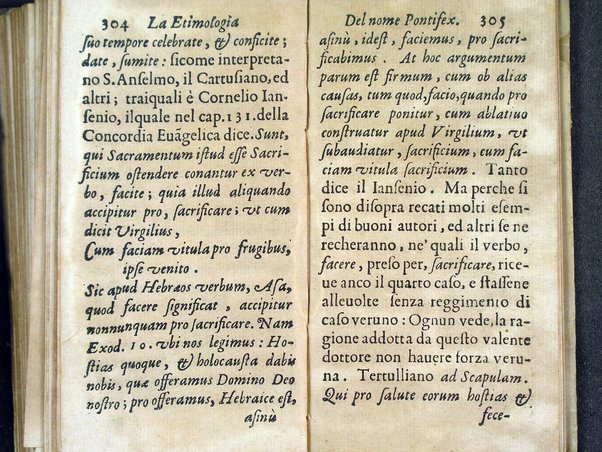 304 La Etimologia
suo tempore celebrate, & conficite;
date, sumite: sicome interpreta-
no S. Anselmo, il Cartusiano, ed
altri; traiquali è Cornelio Ian-
senio, ilquale nel cap. 131. della
Concordia Euãgelica dice. Sunt,
qui Sacramentum istud esse Sacri-
ficium ostendere conantur ex ver-
bo, facite; quia illud aliquando
accipitur pro, sacrificare; vt cum
dicit Virgilius,
Cum faciam vitula pro frugibus,
ipse venito.
Sic apud Hebræos verbum, Asa,
quod facere significat, accipitur
nonnunquam pro sacrificare. Nam
Exod. 10. vbi nos legimus: Ho-
stias quoque, & holocausta dabis
nobis, quæ offeramus Domino Deo
nostro; pro offeramus, Hebraice est,
asinù
Del nome Pontifex. 305
asinù, idest, faciemus, pro sacri-
ficabimus. At hoc argumentum
parum est firmum, cum ob alias
causas, tum quod, facio, quando pro
sacrificare ponitur, cum ablatiuo
construatur apud Virgilium, vt
subaudiatur, sacrificium, cum fa-
ciam vitula sacrificium. Tanto
dice il Iansenio. Ma perche si
sono disopra recati molti esem-
pi di buoni autori, ed altri se ne
recheranno, ne' quali il verbo,
facere, preso per, sacrificare, rice-
ue anco il quarto caso, e stassene
alleuolte senza reggimento di
caso veruno: Ognun vede, la ra-
gione addotta da questo valente
dottore non hauere forza veru-
na. Tertulliano ad Scapulam.
Qui pro salute eorum hostias &
fece-